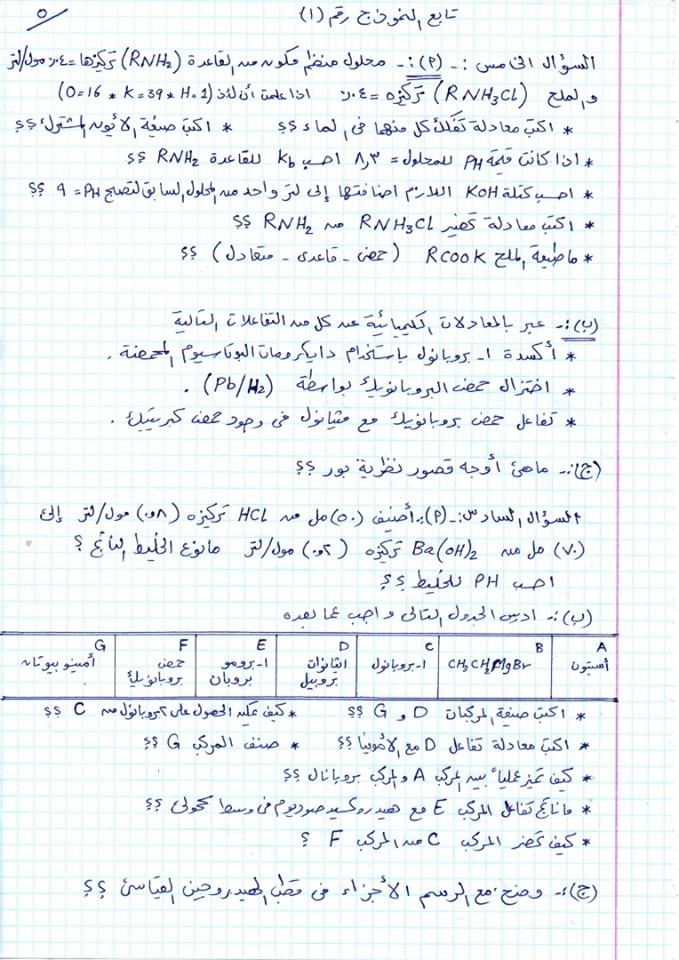 ٥
تابع النموذج رقم (١)
السؤال الخامس :- (P) :- محلول منظم مكون من القاعدة (RNH₂) تركيزها = ٠,٤ مول/لتر
والملح (RNH₃Cl) تركيزه = ٠,٤ اذا علمت أن لذذ (H=1 * K=39 * O=16)
* اكتب معادلة تفكك كل منهما في الماء ؟؟ * اكتب صيغة الأيون المشترك ؟؟
* اذا كانت قيمة PH للمحلول = ٨,٣ احسب Kb للقاعدة RNH₂ ؟؟
* احسب كتلة KOH اللازم اضافتها إلى لتر واحد من المحلول السابق لتصبح PH = ٩ ؟؟
* اكتب معادلة تحضير RNH₃Cl من RNH₂ ؟؟
* ماطبيعة الملح RCOOK (حمض - قاعدى - متعادل) ؟؟
(ب) :- عبر بالمعادلات الكيميائية عن كل من التفاعلات التالية
* أكسدة ١- بروبانول باستخدام دايكرومات البوتاسيوم المحمضة .
* اختزال حمض البروبانويك بواسطة (Pb/H₂) .
* تفاعل حمض بروبانويك مع ميثانول في وجود حمض كبريتيك .
(ج) :- ماهي أوجه قصور نظرية بور ؟؟
السؤال السادس :- (P) :- أضيف (٥٠) مل من HCL تركيزه (٠,٨) مول/لتر إلى
(٧٠) مل من Ba(OH)₂ تركيزه (٠,٢) مول/لتر مانوع الخليط الناتج ؟
احسب PH للخليط ؟؟
(ب) :- ادرس الجدول التالي واجب عما بعده
A B C D E F G
أسيتون CH₃CH₂MgBr ١-بروبانول ايثانوات بروبيل ١-برومو بروبان حمض بروبانويك أمينو بيوتان
* اكتب صيغة المركبات D و G ؟؟ * كيف يمكن الحصول على ٢بروبانول من C ؟؟
* اكتب معادلة تفاعل D مع الأمونيا ؟؟ * صنف المركب G ؟؟
* كيف تميز عملياً بين المركب A والمركب بروبانال ؟؟
* ماناتج تفاعل المركب E مع هيدروكسيد صوديوم في وسط كحولي ؟؟
* كيف تحضر المركب C من المركب F ؟
(ج) :- وضح مع الرسم الأجزاء في قطب الهيدروجين القياسي ؟؟